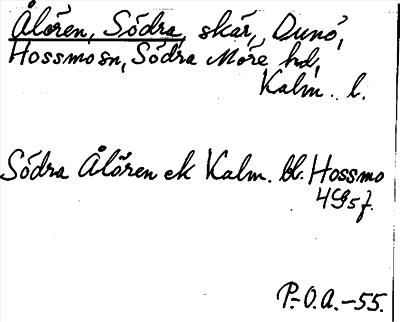 Ålören, Södra, skär, Dunö,
Hossmosn, Södra Möre hd,
Kalm. l.
Södra Ålören ek Kalm. bl. Hossmo
4G5f.
P.-O.A.-55.